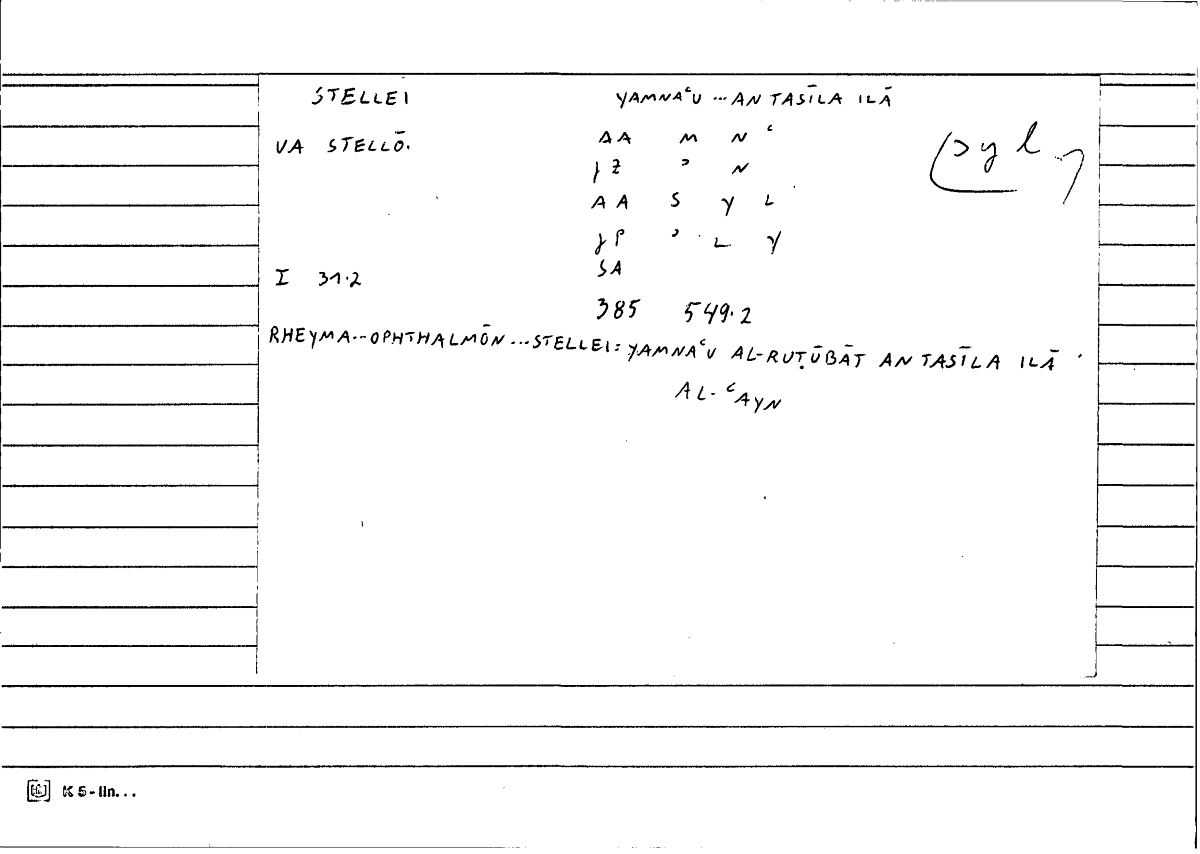 STELLEI YAMNAᶜU ... AN TASĪLA ILĀ
VA STELLŌ. AA M N ᶜ
JZ ʾ N
AA S Y L
JP ʾ L Y
SA
I 31.2
385 549.2
RHEYMA...OPHTHALMŌN...STELLEI: YAMNAᶜU AL-RUṬŪBĀT AN TASĪLA ILĀ
AL-ᶜAYN
K5-lin...